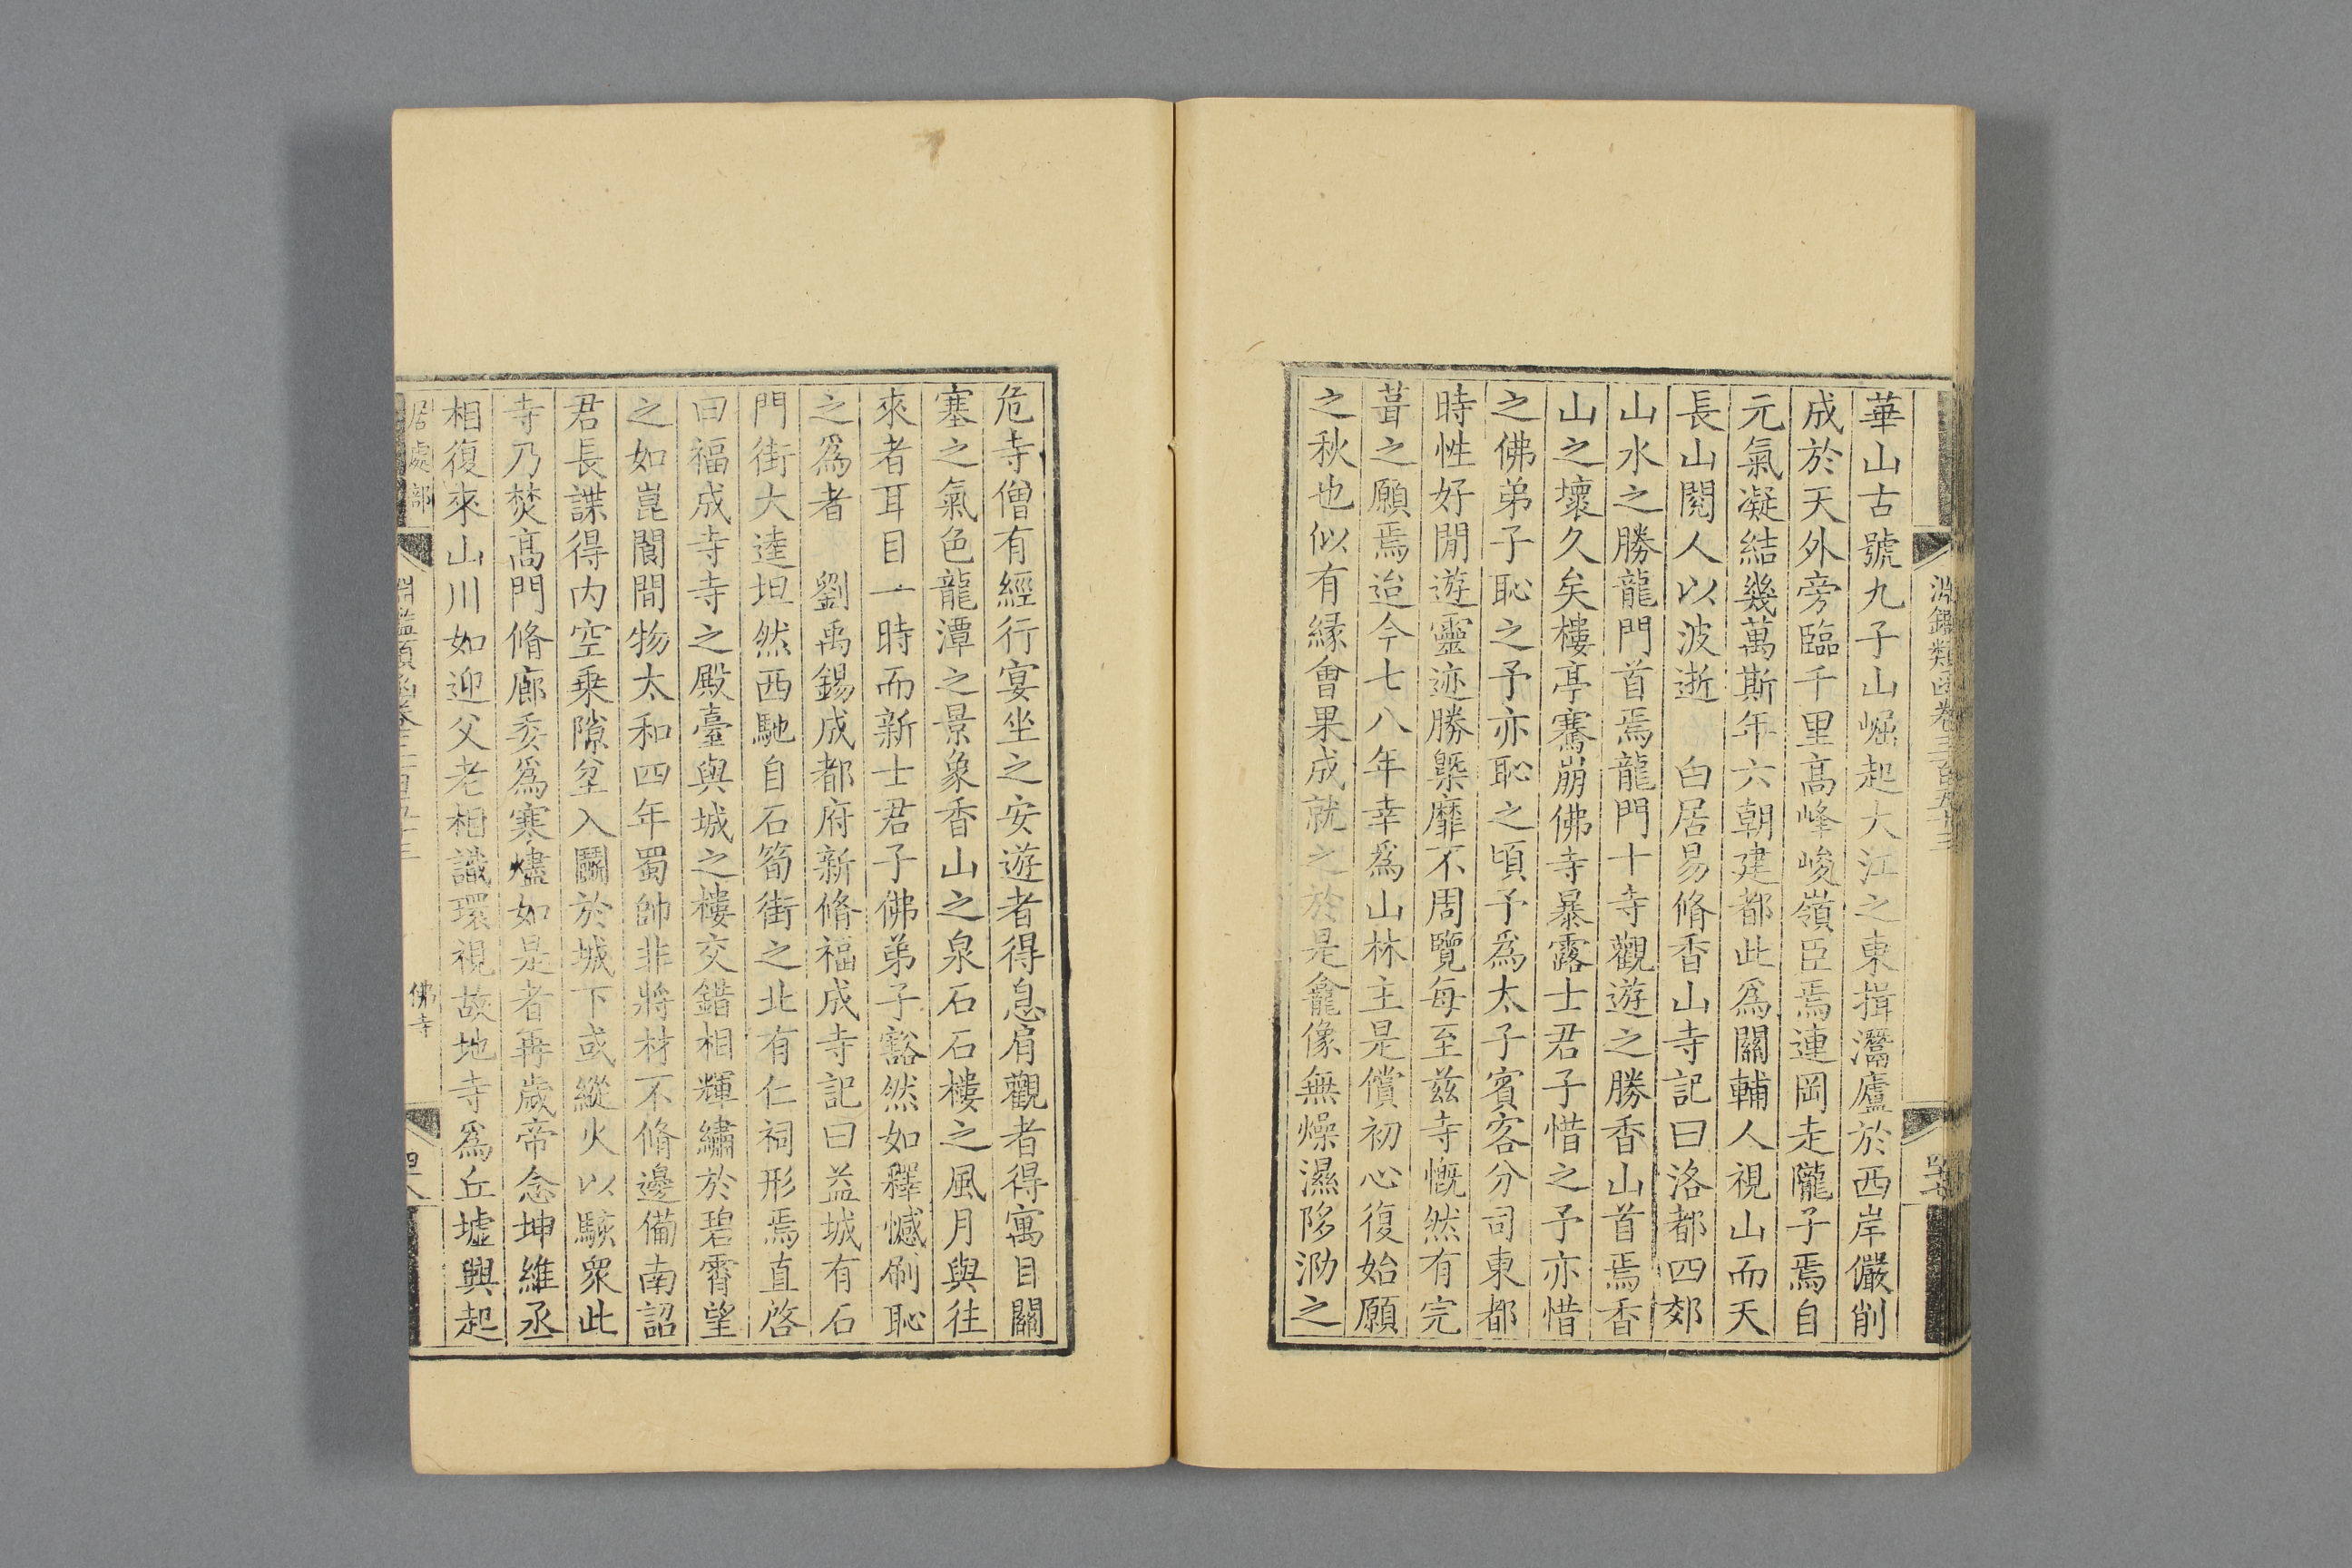 淵鑑類函卷三百五十三
華山古號九子山崛起大江之東揖灊廬於西岸儼削
成於天外旁臨千里高峰峻嶺臣焉連岡走隴子焉自
元氣凝結幾萬斯年六朝建都此爲關輔人視山而天
長山閱人以波逝 白居易脩香山寺記曰洛都四郊
山水之勝龍門首焉龍門十寺觀遊之勝香山首焉香
山之壞久矣樓亭騫崩佛寺暴露士君子惜之予亦惜
之佛弟子恥之予亦恥之頃予爲太子賓客分司東都
時性好閒遊靈迹勝槩靡不周覽每至茲寺慨然有完
葺之願焉迨今七八年幸爲山林主是償初心復始願
之秋也似有緣會果成就之於是龕像無燥濕陊泐之
危寺僧有經行宴坐之安遊者得息肩觀者得寓目關
塞之氣色龍潭之景象香山之泉石石樓之風月與往
來者耳目一時而新士君子佛弟子豁然如釋憾刷恥
之爲者 劉禹錫成都府新脩福成寺記曰益城有石
門街大逵坦然西馳自石筍街之北有仁祠形焉直啓
曰福成寺寺之殿臺與城之樓交錯相輝繡於碧霄望
之如崑閬間物太和四年蜀帥非將材不脩邊備南詔
君長諜得内空乗隙坌入鬭於城下或縱火以駭衆此
寺乃焚高門脩廊委爲寒燼如是者再歲帝念坤維丞
相復來山川如迎父老相識環視故地寺爲丘墟興起
居處部 淵鑑類函卷三百五十三 佛寺 四八